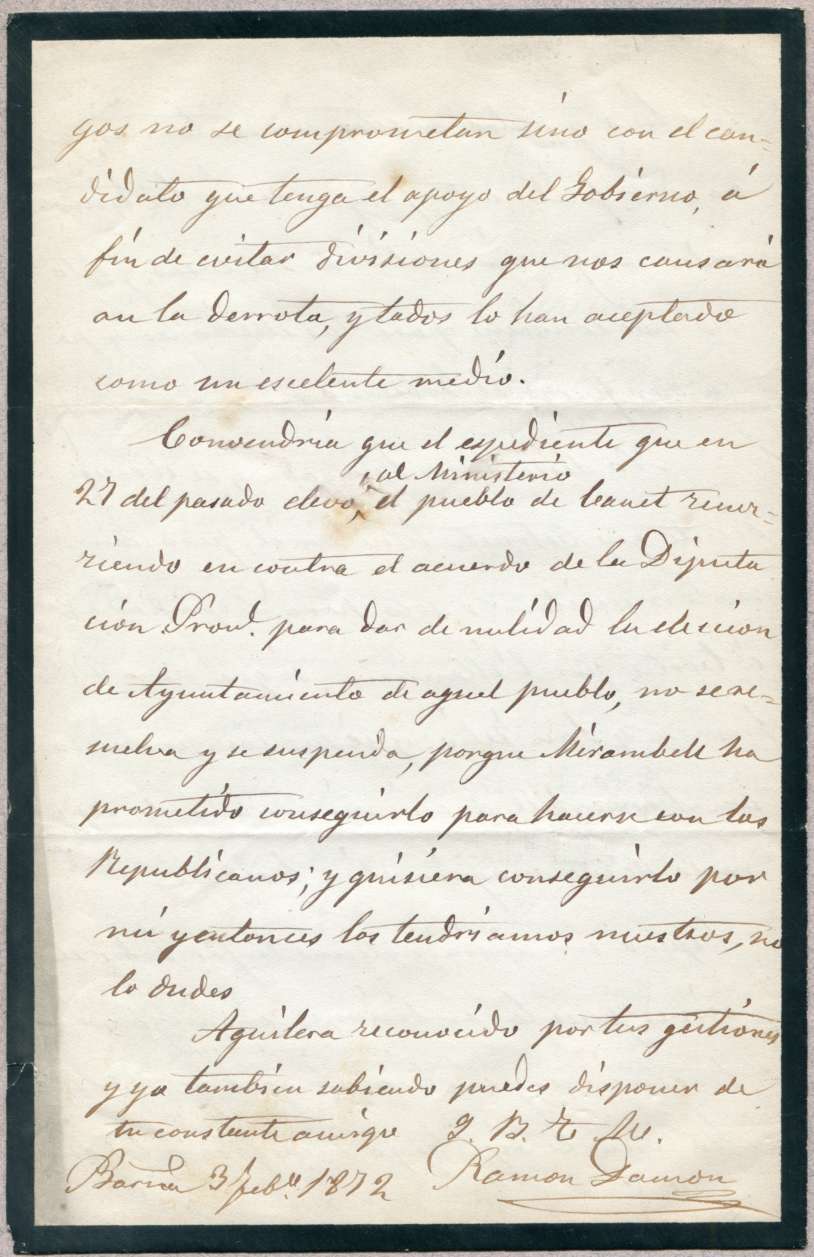 gos no se comprometan sino con el can-
didato que tenga el apoyo del Gobierno, á
fin de evitar divisiones que nos causari
an la derrota, y todos lo han aceptado
como un escelente medio.
Convendria que el espediente que en
al Ministerio
27 del pasado elevo, el pueblo de Canet recur-
riendo en contra el acuerdo de la Diputa
ción Provl. para dar de nulidad la eleccion
de Ayuntamiento de aquel pueblo, no se re-
suelva y se suspenda, porque Mirambell ha
prometido conseguirlo para hacerse con los
Republicanos; y quisiera conseguirlo por
mi y entonces los tendriamos nuestros, no
lo dudes
Aguilera reconocido por tus gestiones
y yo tambien sabiendo puedes disponer de
tu constante amigo
Q. B. T. M.
Barna 3 Febo. 1872
Ramon Damon